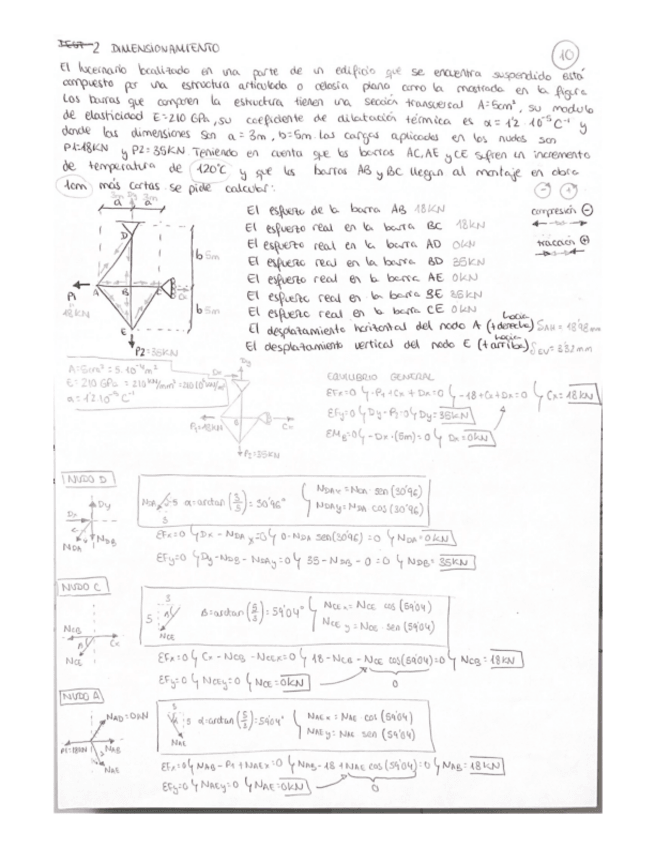 TEST 2 DIMENSIONAMIENTO
10
El lucernario localizado en una parte de un edificio que se encuentra suspendido está
compuesto por una estructura articulada o celosía plana como la mostrada en la figura
Las barras que componen la estructura tienen una sección transversal A=5cm², su modulo
de elasticidad E=210 GPa, su coeficiente de dilatación térmica es α=1'2·10⁻⁵C⁻¹ y
donde las dimensiones son a=3m, b=5m. Las cargas aplicadas en los nudos son
P1=18KN y P2=35KN. Teniendo en cuenta que las barras AC, AE y CE sufren un incremento
de temperatura de 120°C y que las barras AB y BC llegan al montaje en obra
1cm más cortas se pide calcular:
El esfuerzo de la barra AB 18KN
El esfuerzo real en la barra BC 18KN
El esfuerzo real en la barra AD 0KN
El esfuerzo real en la barra BD 35KN
El esfuerzo real en la barra AE 0KN
El esfuerzo real en la barra BE 35KN
El esfuerzo real en la barra CE 0KN
El desplazamiento horizontal del nodo A (+ hacia derecha)
El desplazamiento vertical del nodo E (+ hacia arriba)
compresión ⊖
tracción ⊕
3m 3m
a a
D
b 5m
P1
18KN
A B
b 5m
E
P2=35KN
A=5cm²=5·10⁻⁴m²
E=210 GPa=210KN/mm²
α=1'2·10⁻⁵C⁻¹
Dy
Dx
P1=18KN
Cx
P2=35KN
EQUILIBRIO GENERAL
ΣFx=0 ↳ -P1+Cx+Dx=0 ↳ -18+Cx+Dx=0 ↳ Cx=18KN
ΣFy=0 ↳ Dy-P2=0 ↳ Dy=35KN
-Dx·(5m)=0 ↳ Dx=0KN
NUDO D
Dy
Dx
NDA NDB
NDA α=arctan(3/5)=30'96° NDAx=NDA sen(30'96)
NDAy=NDA cos(30'96)
ΣFx=0 ↳ Dx-NDAx=0 ↳ 0-NDA sen(30'96)=0 ↳ NDA=0KN
ΣFy=0 ↳ Dy-NDB-NDAy=0 ↳ 35-NDB-0=0 ↳ NDB=35KN
NUDO C
NCB Cx
NCE
5 NCE B=arctan(5/3)=59'04° NCEx=NCE cos(59'04)
NCEy=NCE sen(59'04)
ΣFx=0 ↳ Cx-NCB-NCEx=0 ↳ 18-NCB-NCE cos(59'04)=0 ↳ NCB=18KN
ΣFy=0 ↳ NCEy=0 ↳ NCE=0KN
0
NUDO A
NAD=0KN
P1=18KN NAB
NAE
NAE α=arctan(5/3)=59'04° NAEx=NAE cos(59'04)
NAEy=NAE sen(59'04)
ΣFx=0 ↳ NAB-P1+NAEx=0 ↳ NAB-18+NAE cos(59'04)=0 ↳ NAB=18KN
ΣFy=0 ↳ NAEy=0 ↳ NAE=0KN
0